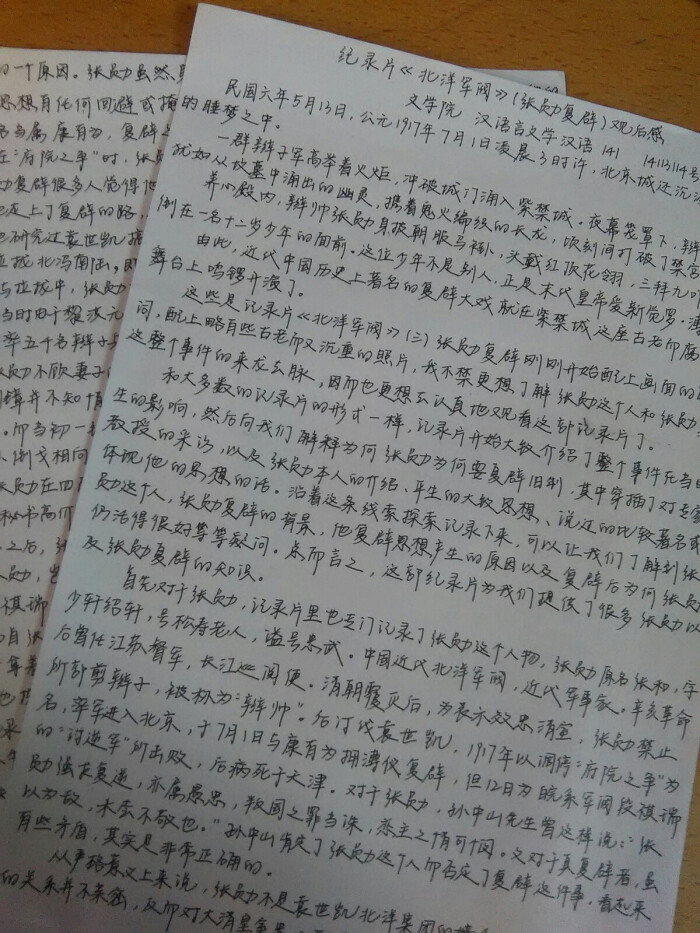 纪录片《北洋军阀》(张勋复辟)观后感
文学院 汉语言文学汉语141 14113114号
民国六年5月13日,公元1917年7月1日凌晨3时许,北京城还沉
的睡梦之中。
一群辫子军高举着火炬,冲破城门涌入紫禁城。夜幕笼罩下,辫
犹如从坟墓中涌出的幽灵,擒着鬼火编织的长龙,顷刻间打破了禁宫
养心殿内,辫帅张勋身披朝服马褂,头戴红顶花翎,三拜九
倒在一名十二岁少年的面前。这位少年不是别人,正是末代皇帝爱新觉罗·溥
由此,近代中国历史上著名的复辟大戏就在紫禁城这座古老而腐
舞台上鸣锣开演了。
这些是记录片《北洋军阀》(三)张勋复辟刚刚开始配上画面的
问,配上略有些古老而又沉重的照片,我不禁更想了解张勋这个人和张勋
这整个事件的来龙去脉,因而也更想去认真地观看这部记录片了。
和大多数的记录片的形式一样,记录片开始大致介绍了整个事件在当时
生的影响,然后向我们解释为何张勋为何要复辟旧制,其中穿插了对专家
教授的采访,以及张勋本人的介绍、平生的大致思想、说过的比较著名或
体现他的思想的话。沿着这条线索探索记录下来,可以让我们了解到张
勋这个人,张勋复辟的背景,他复辟思想产生的原因以及复辟后为何张勋
仍活得很好等等疑问。总而言之,这部纪录片为我们提供了很多张勋以
及张勋复辟的知识。
首先对于张勋,记录片里也专门记录了张勋这个人物,张勋原名张和,字
少轩绍轩,号松寿老人,谥号忠武。中国近代北洋军阀,近代军事家。辛亥革命
后曾任江苏督军,长江巡阅使。清朝覆灭后,为表示效忠清室,张勋禁止
所部剪辫子,被称为“辫帅”。后讨伐袁世凯,1917年以调停“府院之争”为
名,率军进入北京,于7月1日与康有为拥溥仪复辟,但12日为皖系军阀段祺瑞
的“讨逆军”所击败,后病死于天津。对于张勋,孙中山先生曾这样说:“张
勋强求复逆,亦属愚忠,叛国之罪当诛,恋主之情可悯。文对于真复辟者,虽
以为敌,未尝不敬也。”孙中山肯定了张勋这个人而否定了复辟这件事。看起来
有些矛盾,其实是非常正确的。
从严格意义上来说,张勋不是袁世凯北洋集团的
的关系并不亲密,反而对大清皇帝
的一个原因。张勋虽然
思想有任何回避或掩
当属康有为,复辟
在“府院之争”时,张
勋复辟很多人觉得他
走上了复辟的路,
研究过袁世凯
拉拢北冯南陆。即
与拉拢中,张勋
当时由于黎元
率五千名辫子
张勋不顾妻子
并不知情
。而当初一
倒戈相向
张勋在四
秘书高价
之后,张